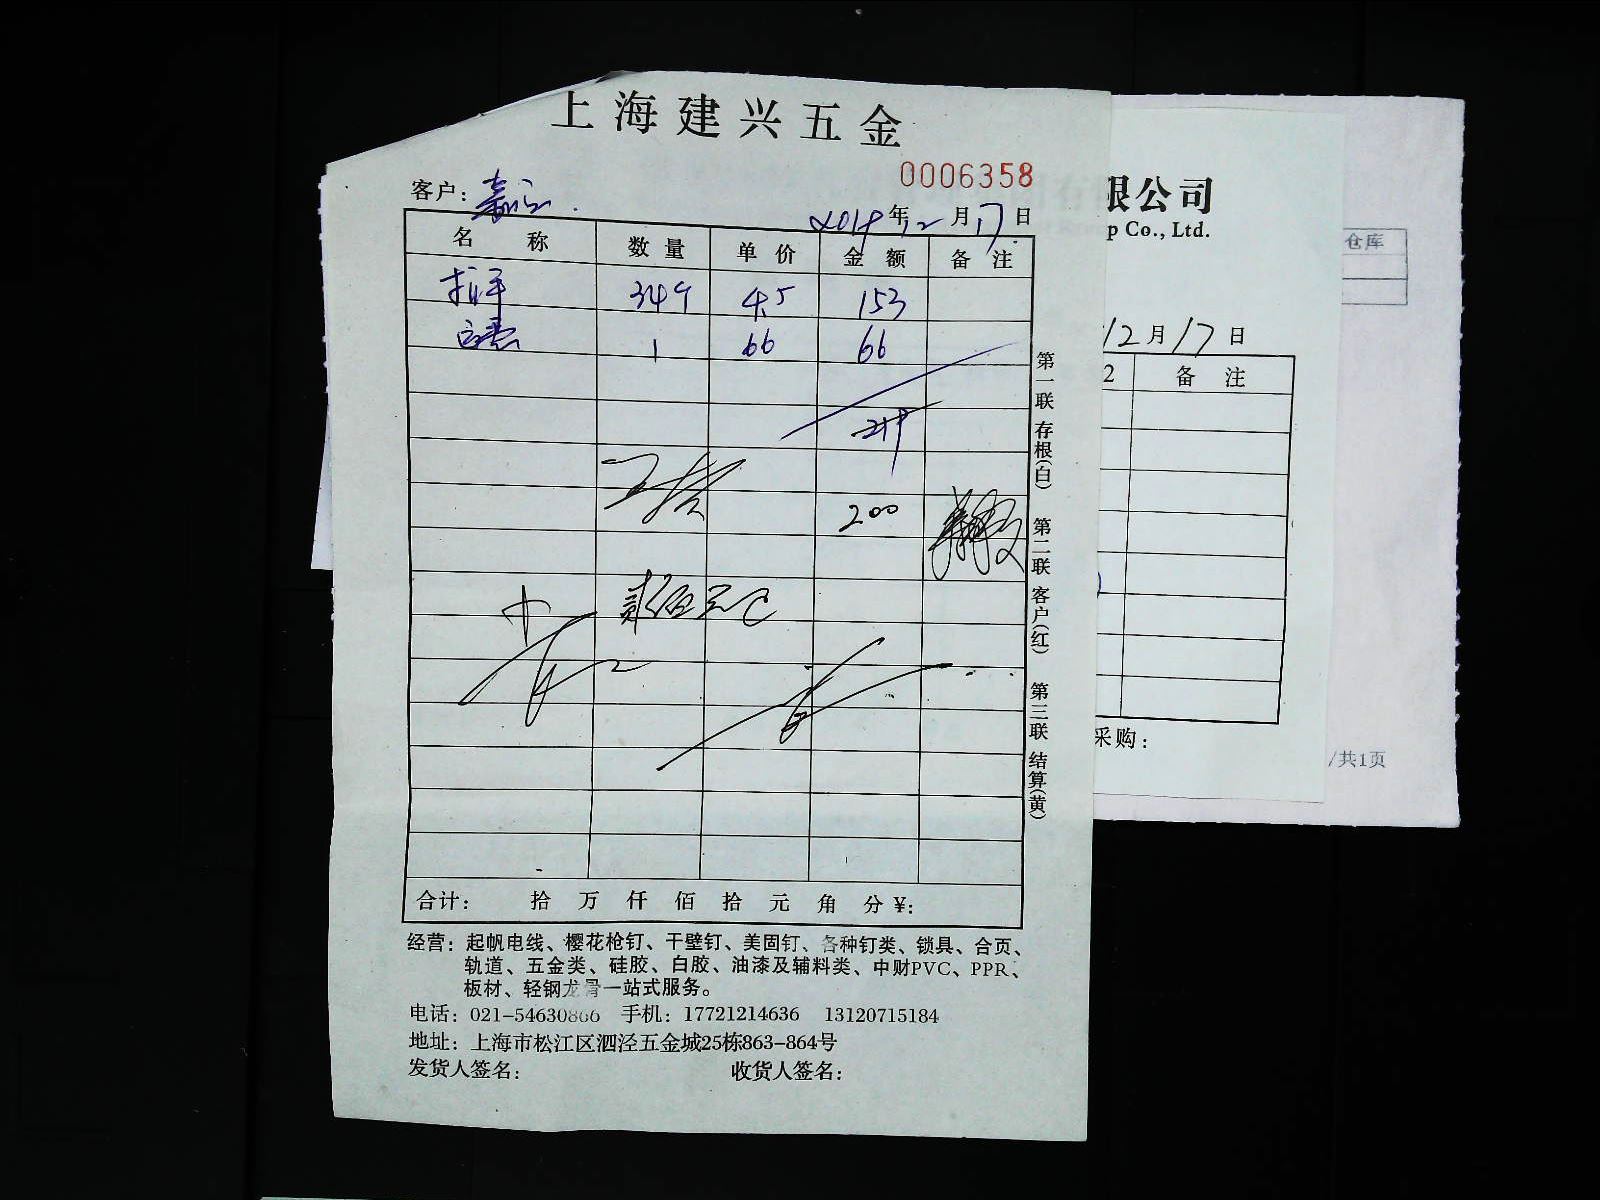 上海建兴五金
0006358
客户：
2019年12月17日
名 称 数量 单价 金额 备注
349 4.5 153
1 66 66
219
200
合计： 拾 万 仟 佰 拾 元 角 分 ¥:
经营：起帆电线、樱花枪钉、干壁钉、美固钉、各种钉类、锁具、合页、
轨道、五金类、硅胶、白胶、油漆及辅料类、中财PVC、PPR、
板材、轻钢龙骨一站式服务。
电话：021-54630866 手机：17721214636 13120715184
地址：上海市松江区泗泾五金城25栋863-864号
发货人签名： 收货人签名：
第一联 存根(白) 第二联 客户(红) 第三联 结算(黄)
限公司
p Co., Ltd.
12月17日
2 备 注
采购：
仓库
/共1页